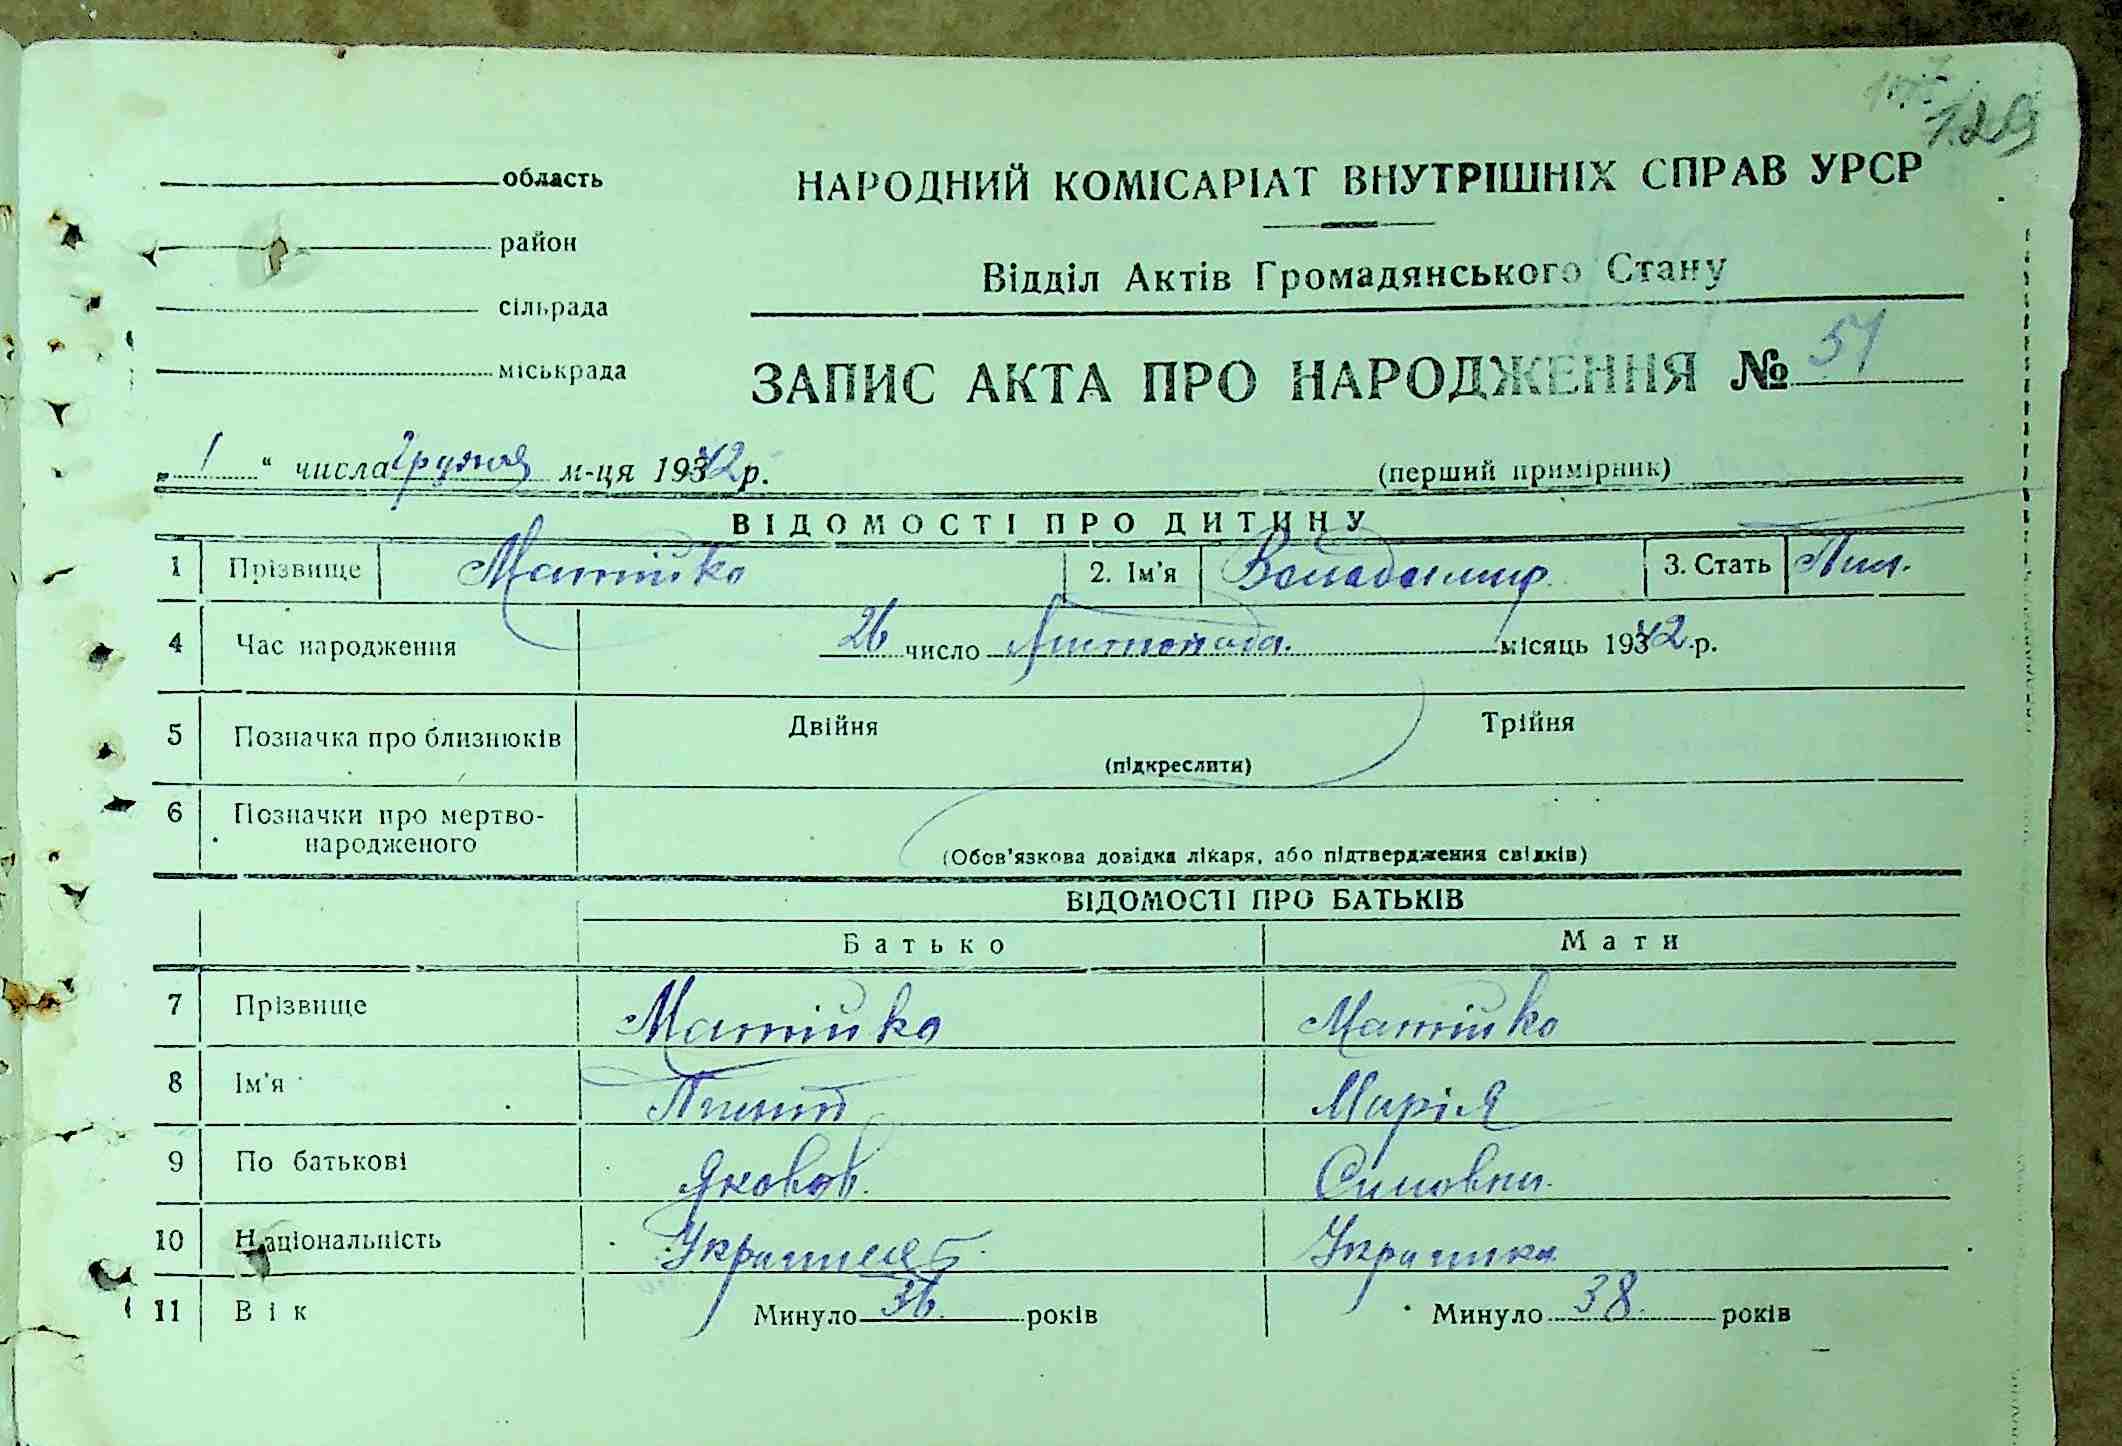 129
область
НАРОДНИЙ КОМІСАРІАТ ВНУТРІШНІХ СПРАВ УРСР
район
Відділ Актів Громадянського Стану
сільрада
міськрада
ЗАПИС АКТА ПРО НАРОДЖЕННЯ № 51
„ 1 “ числа Грудня м-ця 1942 р. (перший примірник)
ВІДОМОСТІ ПРО ДИТИНУ
1 Прізвище Матійко 2. Ім'я Володимир 3. Стать
4 Час народження 26 число Листопада місяць 1942 р.
5 Позначка про близнюків Двійня Трійня
(підкреслити)
6 Позначки про мертво-
народженого
(Обов'язкова довідка лікаря, або підтвердження свідків)
ВІДОМОСТІ ПРО БАТЬКІВ
Батько Мати
7 Прізвище Матійко Матійко
8 Ім'я Марія
9 По батькові Яковов.
10 Національність Украінец Украінка
11 Вік Минуло 36 років Минуло 38 років